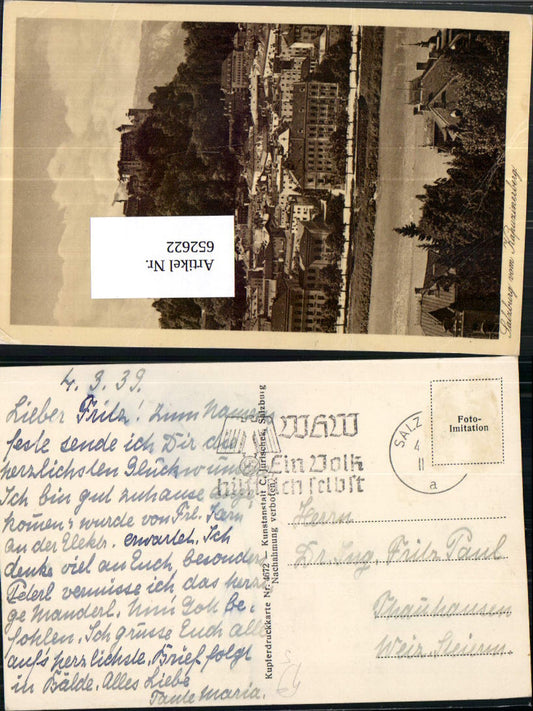 Artikel Nr.
652622
Salzburg vom Kapuzinerberg
4. 9. 39.
Lieber Fritz! Zum Namens
feste sende ich Dir die
herzlichsten Glückwünsche
Ich bin gut zuhause
kommen; wurde von Frl.
an der Elektr. erwartet. Ich
denke viel an Euch, besonders
Peterl vermisse ich, das herzi
ge Manderl.
Ich grüsse Euch alle
auf's herzlichste. Brief folgt
in Bälde. Alles Liebe
Tante Maria.
Kupferdruckkarte Nr. 4672 – Kunstanstalt C. Jurischek, Salzburg
Nachahmung verboten
WHW
Ein Volk
hilft sich selbst
SALZ
4
11
a
Foto-
Imitation
Herrn
Dr. Ing. Fritz Paul
Thauhausen
Weiz. Steierm.